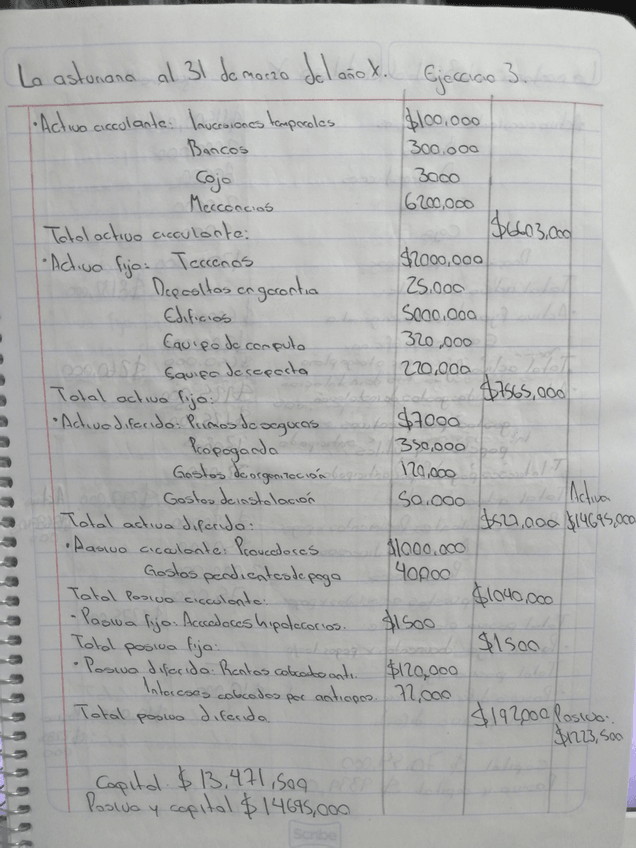 La asturiana al 31 de marzo del año X. Ejercicio 3.
•Activo circulante: Inversiones temporales $100,000
Bancos 300,000
Caja 3000
Mercancias 6200,000
Total activo circulante: $6603,000
•Activo fijo: Terrenos $2000,000
Depositos en garantia 25,000
Edificios 5000,000
Equipo de computo 320,000
Equipo de reparto 220,000
Total activo fijo: $7565,000
•Activo diferido: Primas de seguros $7000
Propaganda 350,000
Gastos de organización 120,000
Gastos de instalación 50,000 Activo
Total activo diferido: $527,000 $14695,000
•Pasivo circulante: Proveedores $1000,000
Gastos pendientes de pago 40,000
Total Pasivo circulante: $1040,000
- Pasivo fijo: Acreedores hipotecarios. $1500
Total pasivo fijo: $1500
• Pasivo diferido: Rentas cobradas anti. $120,000
Intereses cobrados por anticipo. 72,000
Total pasivo diferido $192,000 Pasivo:
$1223,500
Capital: $ 13,471,500
Pasivo y capital $ 14695,000
Scribe